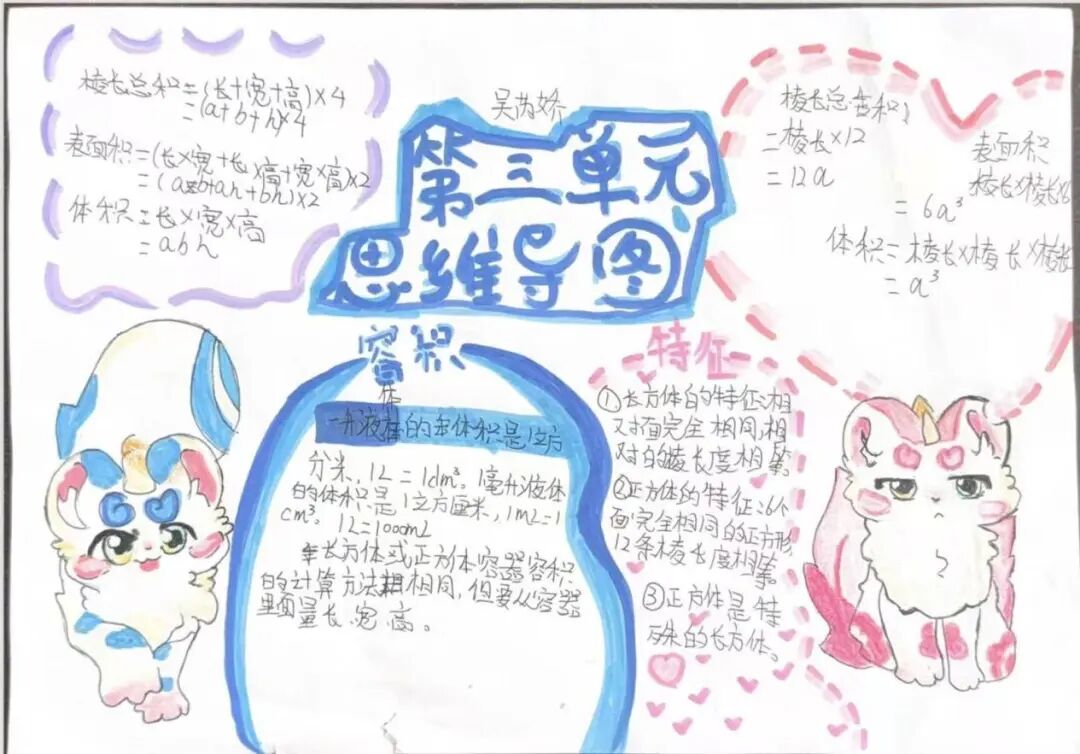 吴芮娇
第三单元
思维导图
棱长总积=(长+宽+高)×4
=(a+b+h)×4
表面积=(长×宽+长×高+宽×高)×2
=(ab+ah+bh)×2
体积=长×宽×高
=abh
棱长总
=棱长×12
=12a
表面积
棱长×棱长×6
=6a³
体积=棱长×棱长×棱长
=a³
容积
体
一升液的体积是1立方
分米,1L=1dm³。1毫升液体
的体积是1立方厘米,1mL=1
cm³。1L=1000mL
长方体或正方体容器容积
的计算方法相同,但要从容器
里面量长、宽、高。
特征
①长方体的特征:相
对面完全相同,相
对的棱长度相等。
②正方体的特征:6个
面完全相同的正方形,
12条棱长度相等。
③正方体是特
殊的长方体。